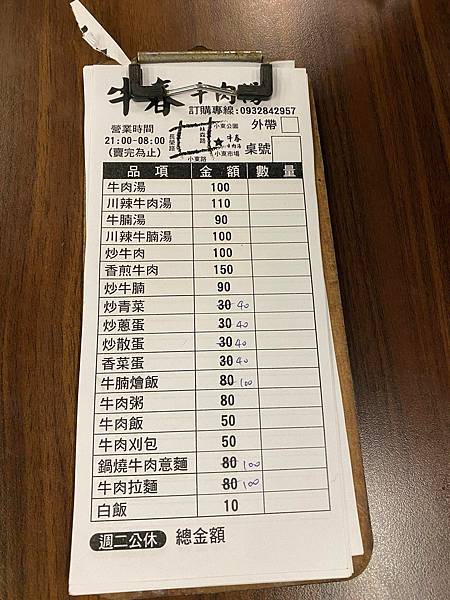 牛春 牛肉湯
訂購專線:0932842957
營業時間
21:00-08:00
(賣完為止)
長榮路
林森路
小東公園
牛春
牛肉湯
小東市場
小東路
外帶
桌號
品 項 金 額 數 量
牛肉湯 100
川辣牛肉湯 110
牛腩湯 90
川辣牛腩湯 100
炒牛肉 100
香煎牛肉 150
炒牛腩 90
炒青菜 30 40
炒蔥蛋 30 40
炒散蛋 30 40
香菜蛋 30 40
牛腩燴飯 80 100
牛肉粥 80
牛肉飯 50
牛肉刈包 50
鍋燒牛肉意麵 80 100
牛肉拉麵 80 100
白飯 10
週二公休 總金額